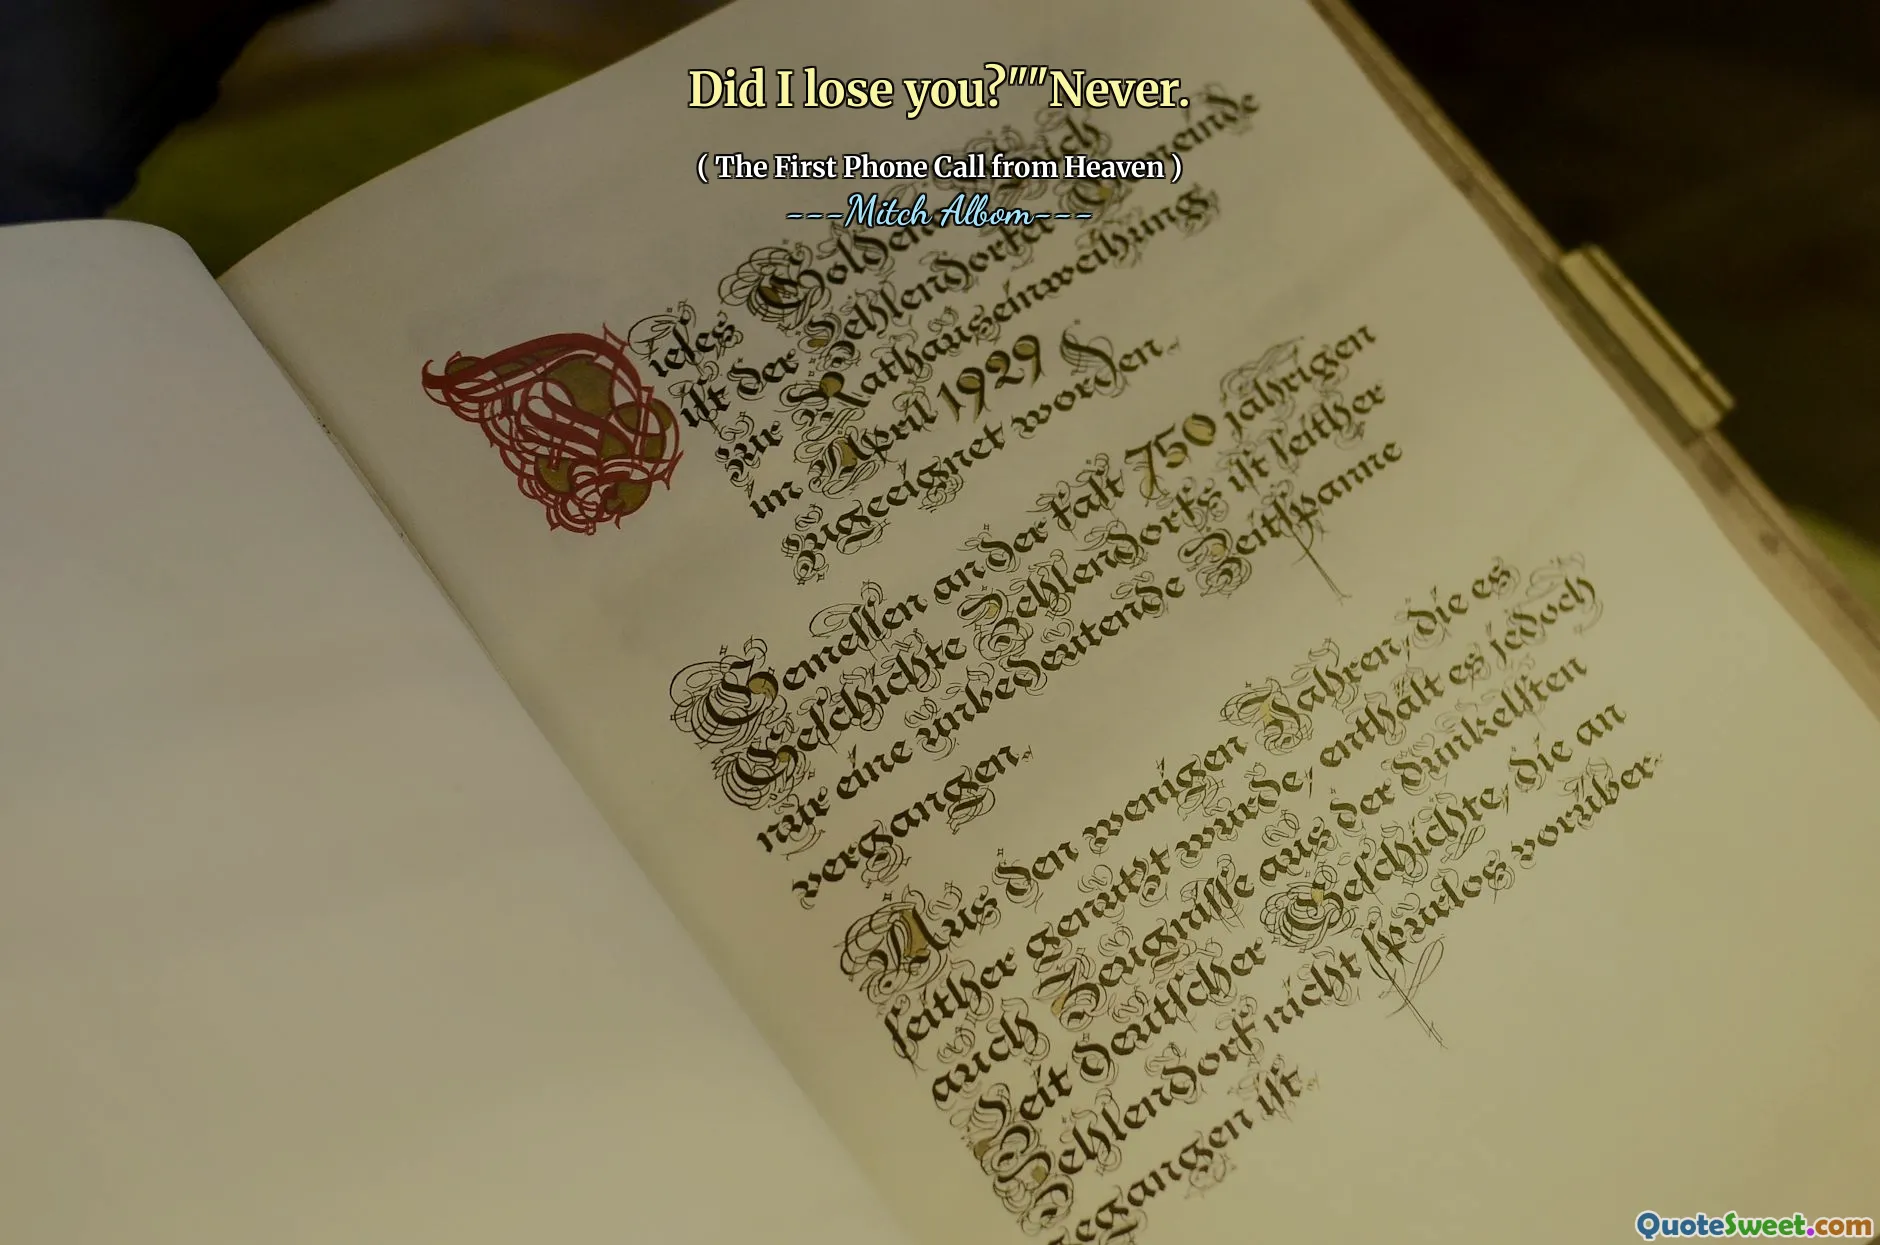 Did I lose you?""Never.
( The First Phone Call from Heaven )
---Mitch Albom---
Dieses
ist der Zehlendorfer Gemeinde
zur Rathauseinweihung
im April 1929
zugeeignet worden.
Gemessen an der fast 750 jährigen
Geschichte Zehlendorfs ist seither
nur eine unbedeutende Zeitspanne
vergangen.
Aus den wenigen Jahren, die es
seither genutzt wurde, enthält es jedoch
auch Zeugnisse aus der dunkelsten
Zeit deutscher Geschichte, die an
Zehlendorf nicht spurlos vorüber
gegangen ist.
QuoteSweet.com